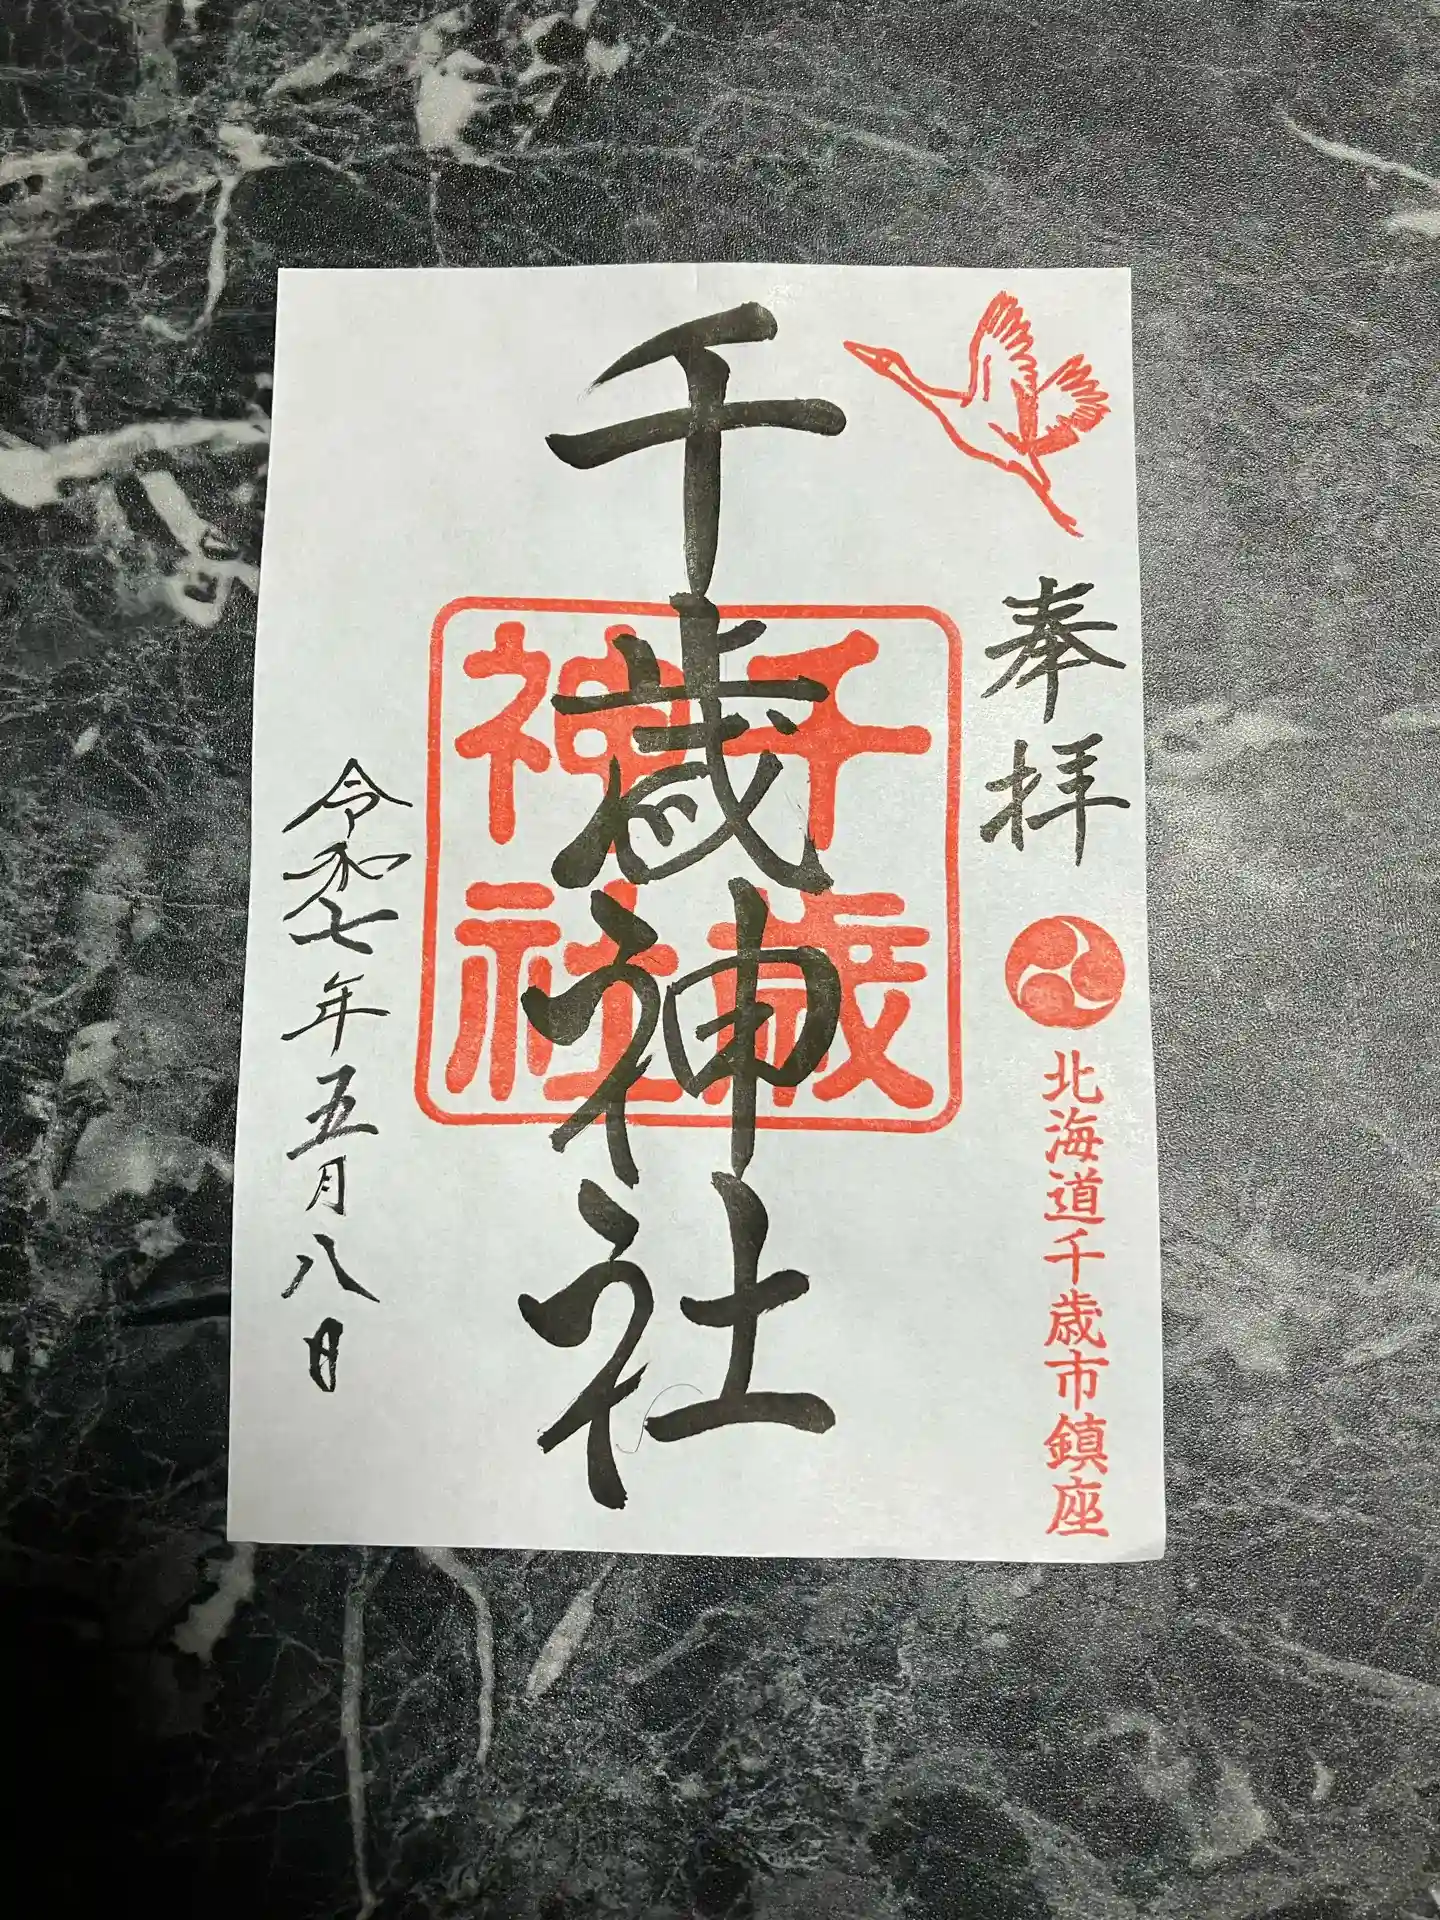 奉拝
北海道千歳市鎮座
千歳神社
千歳
神社
令和七年五月八日